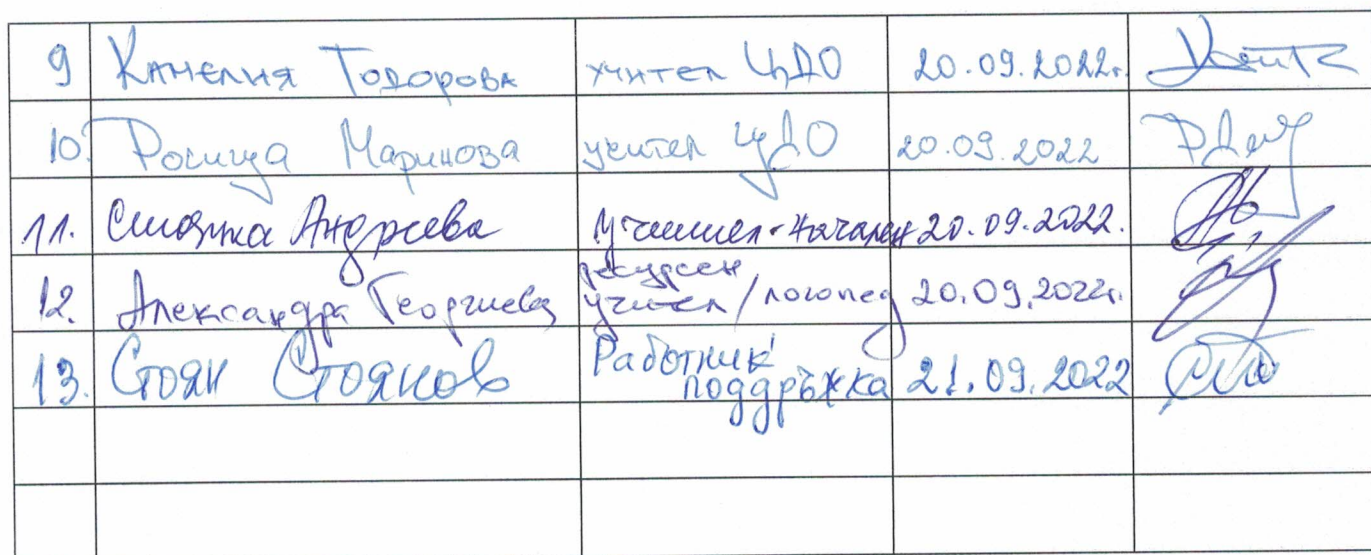 9 Камелия Тодорова учител ЦДО 20.09.2022г.
10. Росица Маринова учител ЦДО 20.09.2022
11. Стоянка Андреева Учител-начален 20.09.2022.
12. Александра Георгиева ресурсен учител/логопед 20.09.2022г.
13. Стоян Стоянов Работник поддръжка 21.09.2022